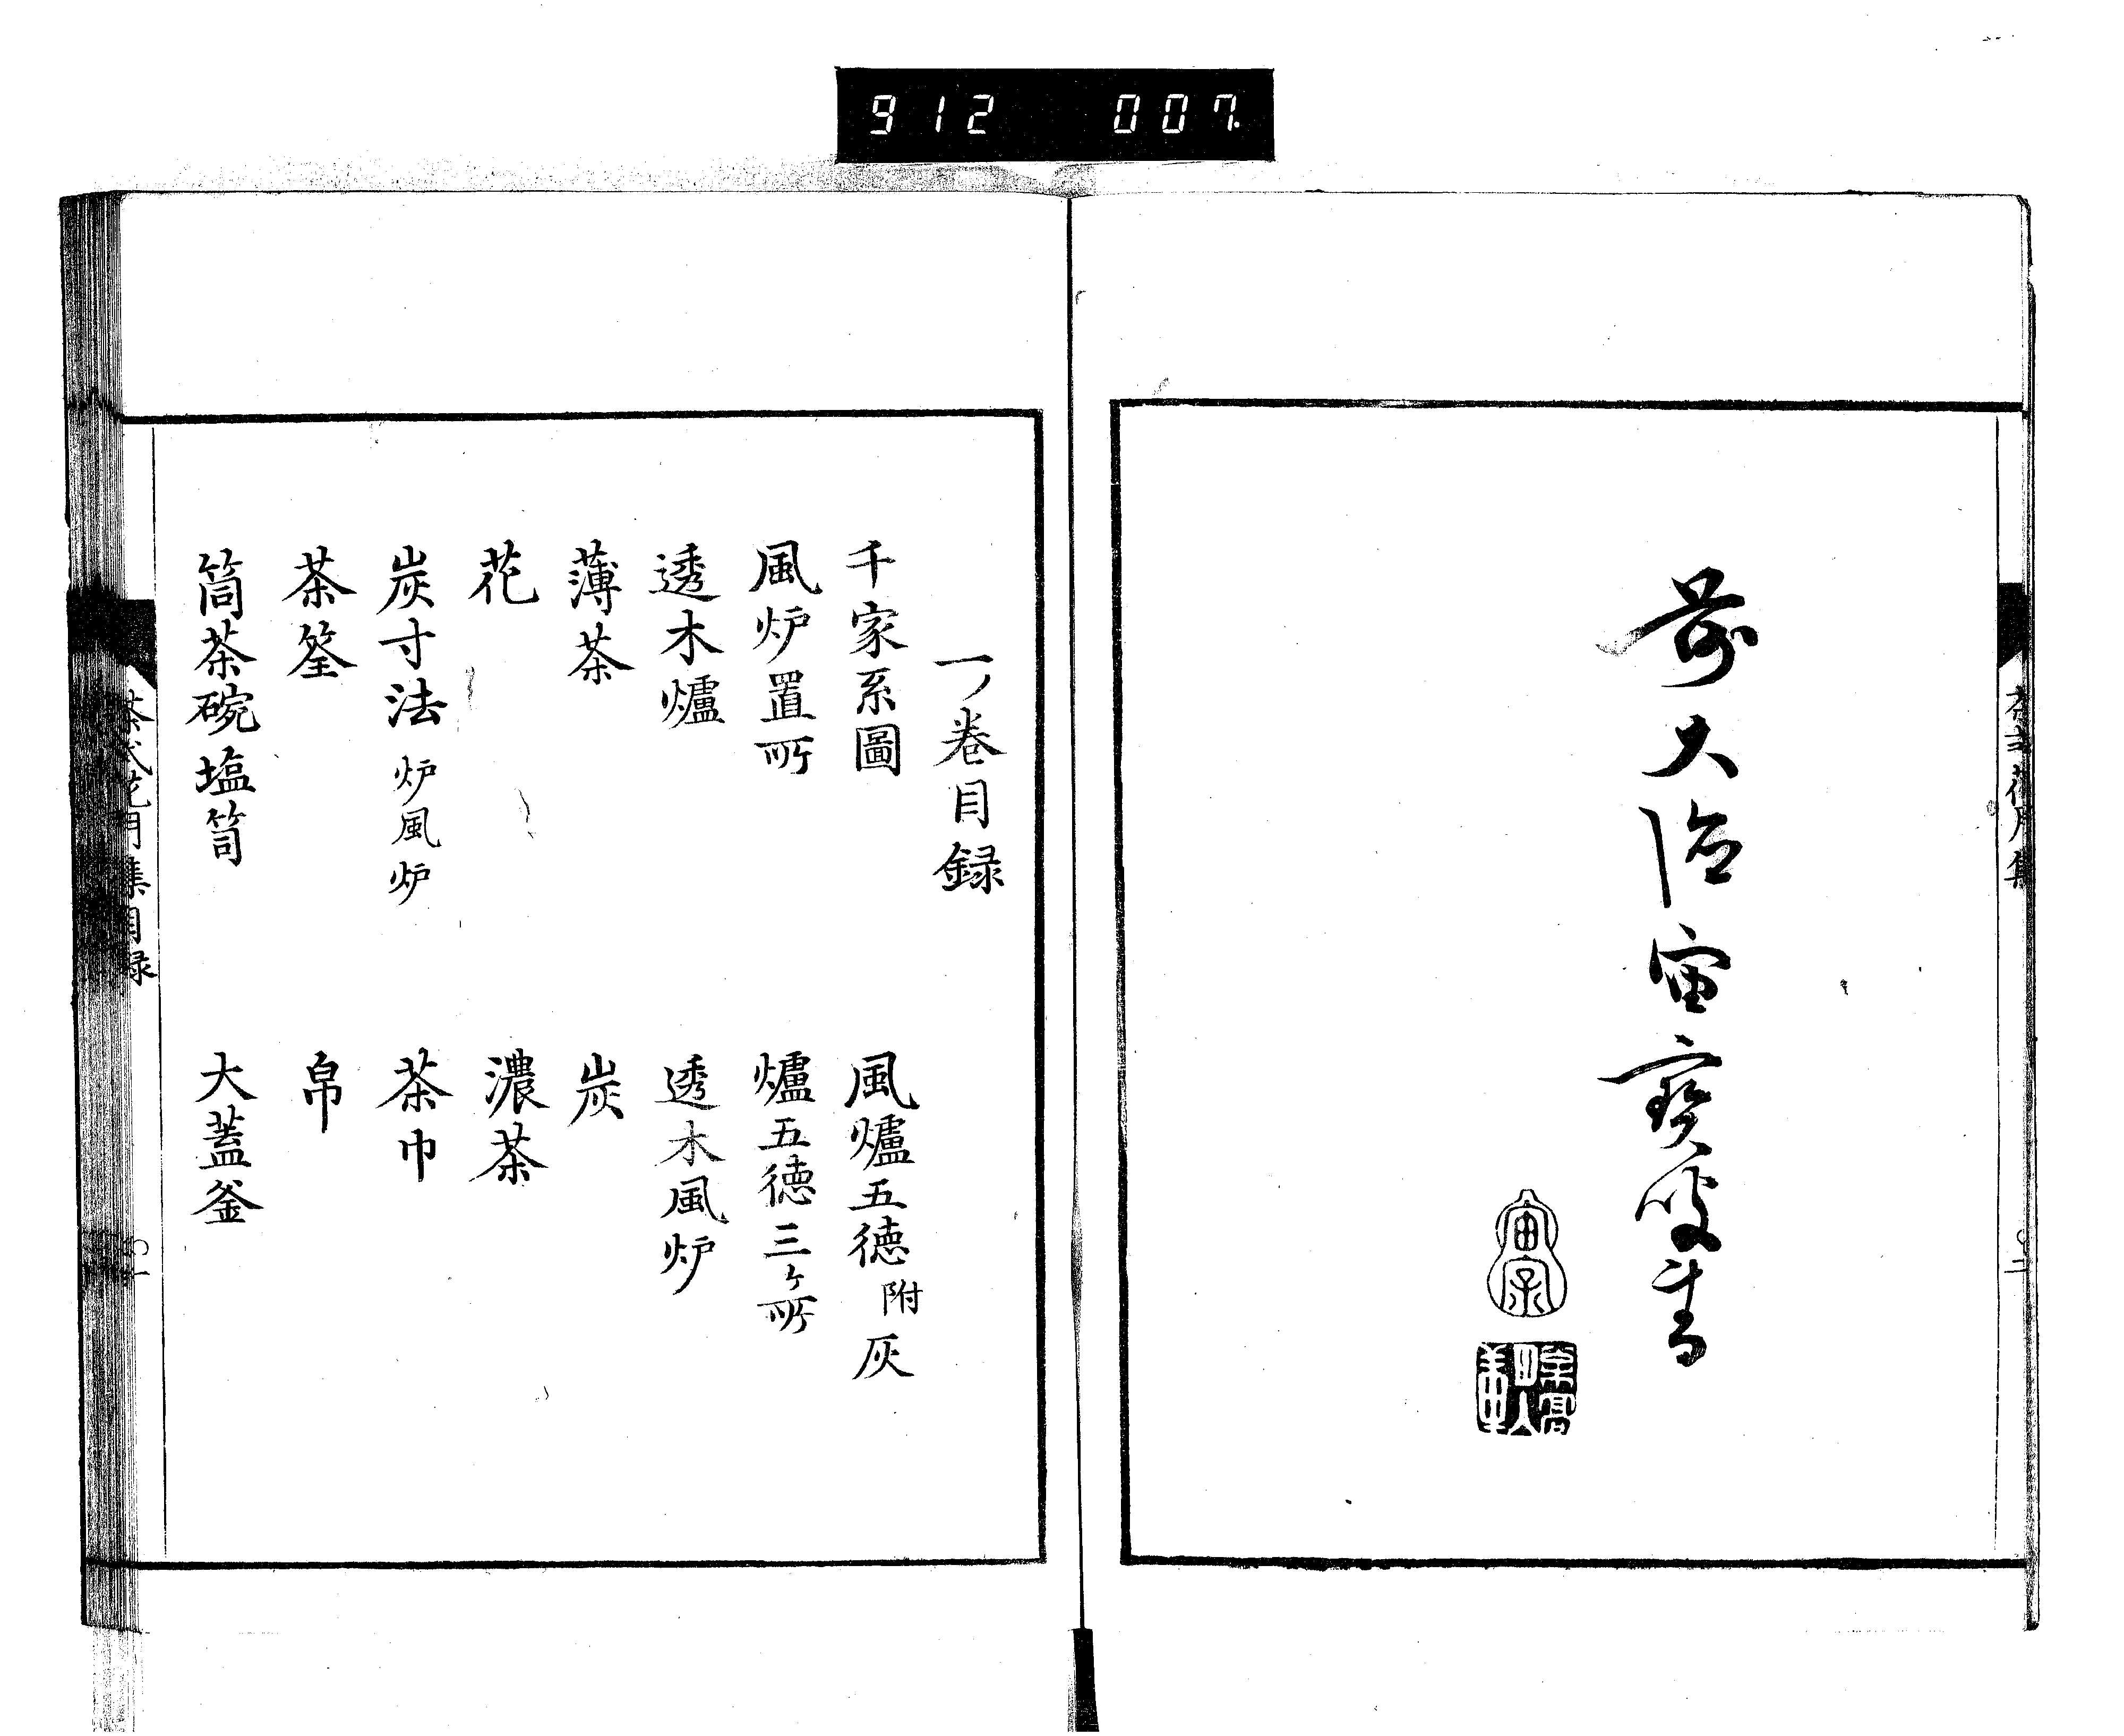 912 007.
前大德宙寶叟書
宙宗
一ノ巻目録
千家系圖
風爐五徳 附灰
風炉置所
爐五徳三ヶ所
透木爐
透木風炉
薄茶
炭
花
濃茶
炭寸法 炉風炉
茶巾
茶筌
帛
筒茶碗塩笥
大蓋釜
茶式花月集目録